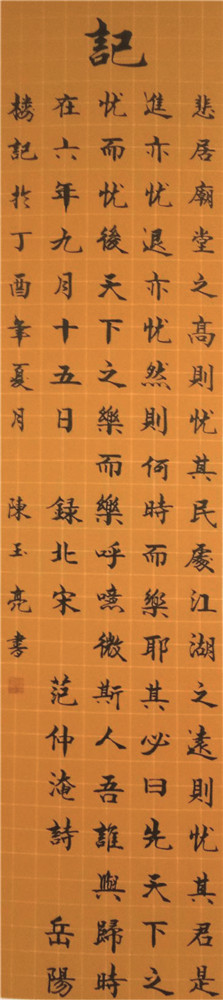 記
悲居廟堂之高則忧其民處江湖之遠則忧其君是
進亦忧退亦忧然則何時而樂耶其必曰先天下之
忧而忧後天下之樂而樂呼噫微斯人吾誰與歸時
在六年九月十五日 録北宋 范仲淹詩 岳陽
楼記於丁酉年夏月 陳玉亮書